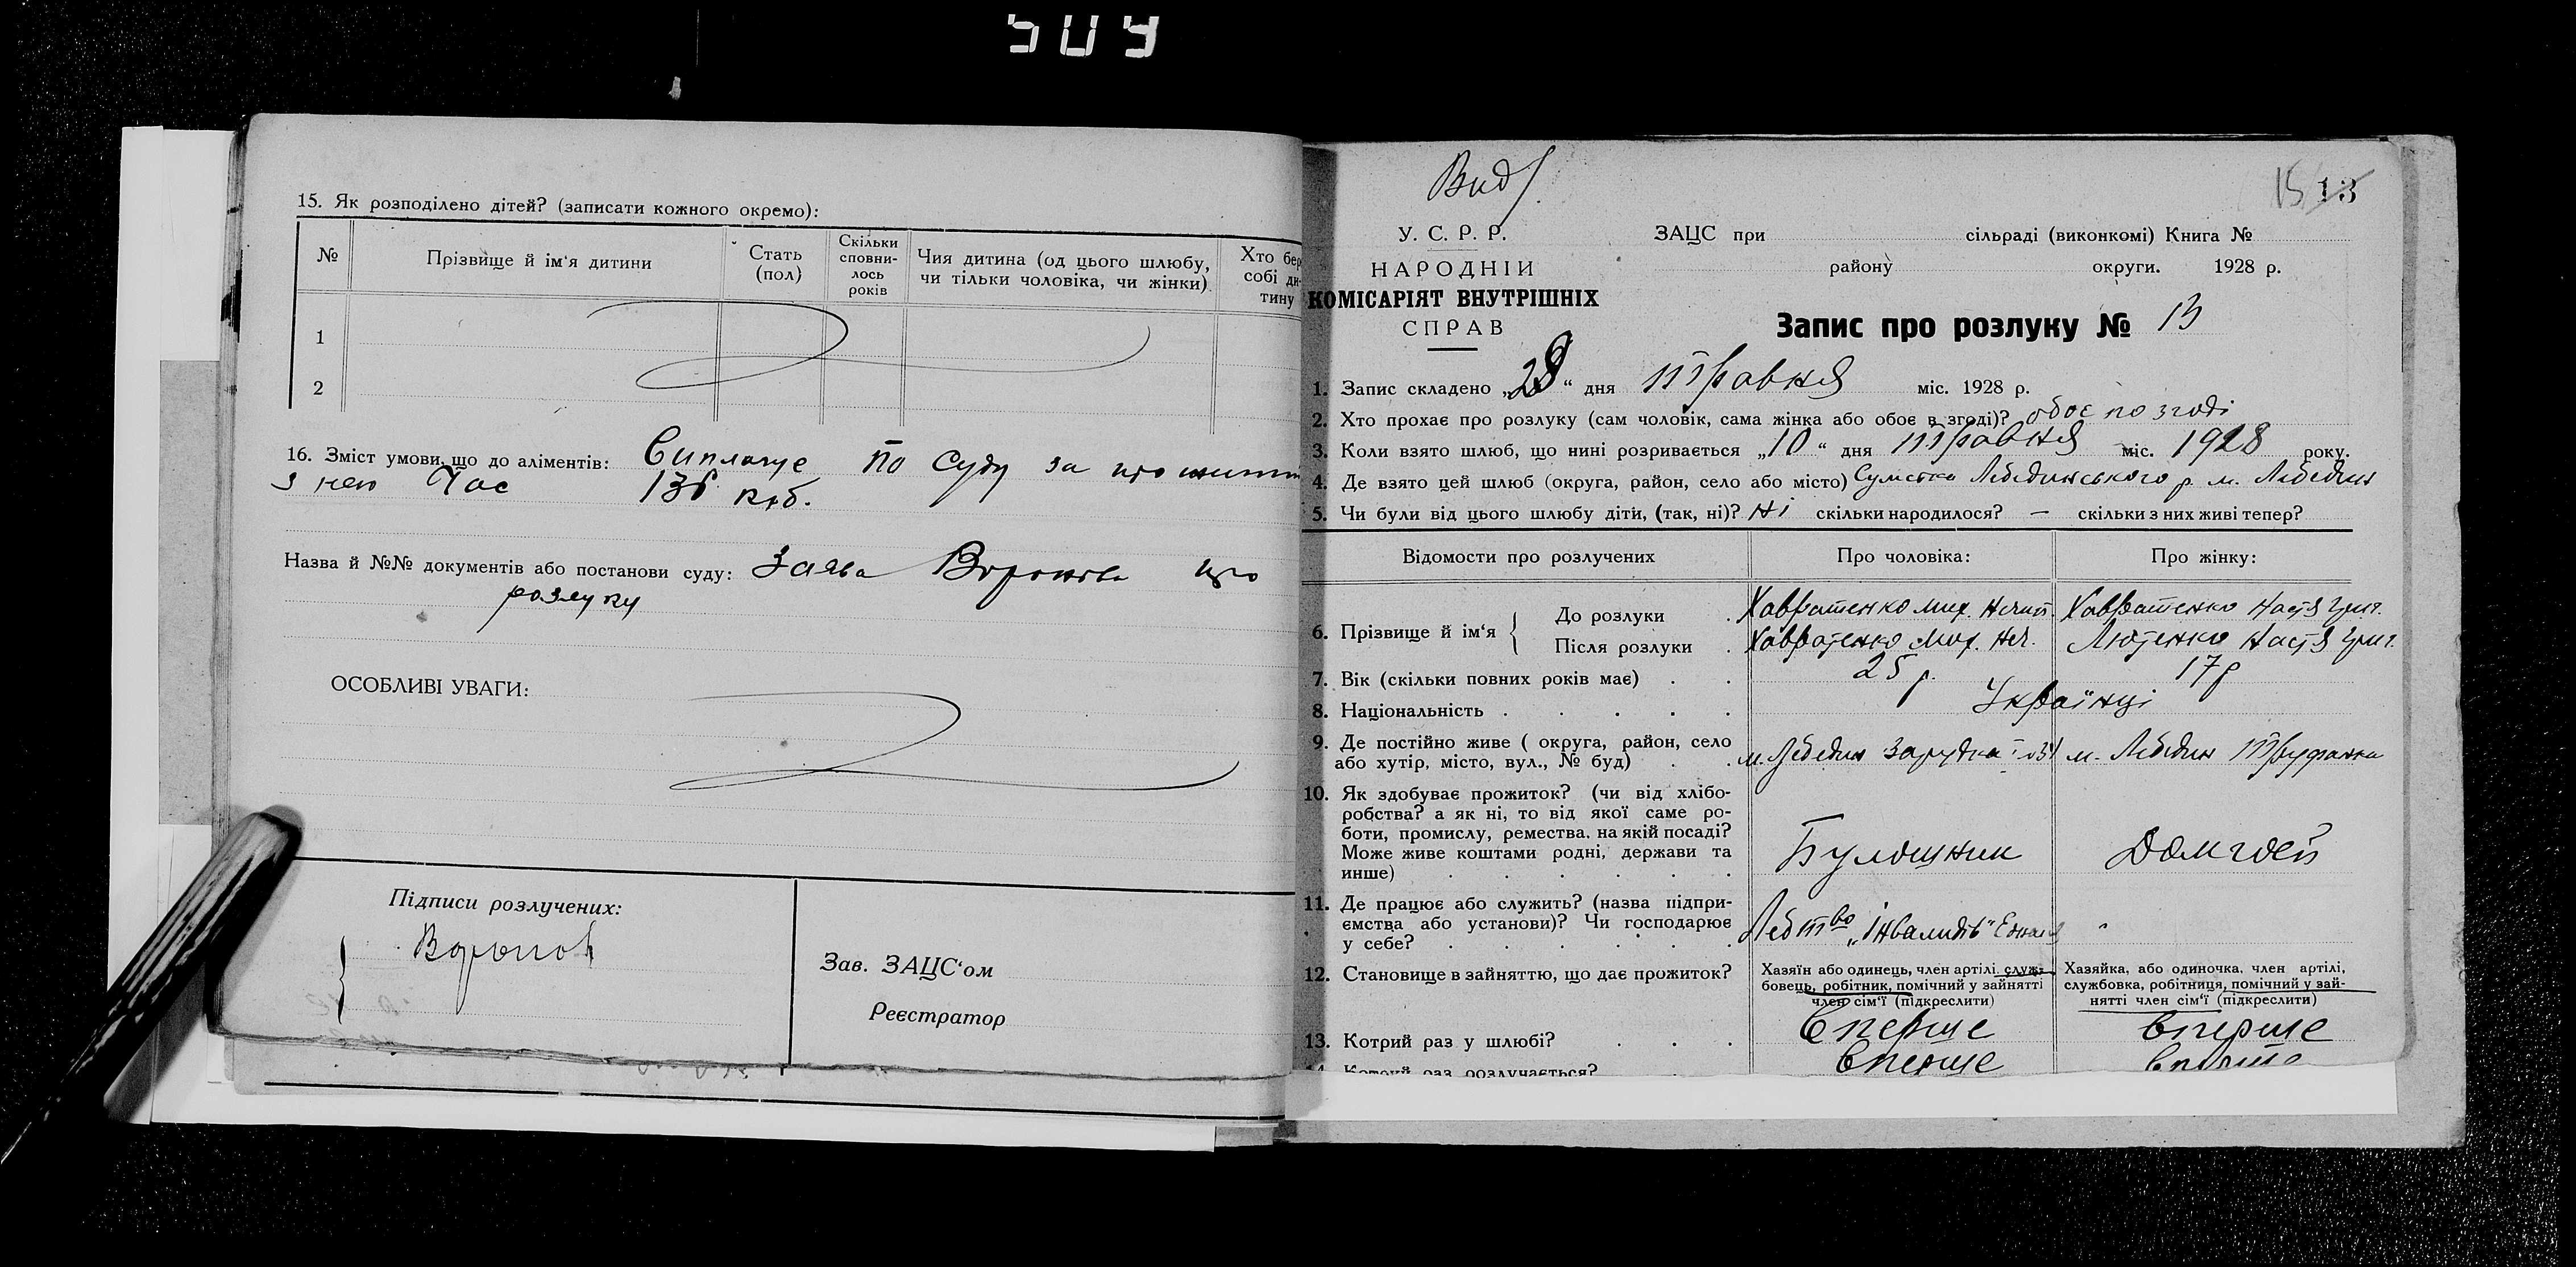 509
15. Як розподілено дітей? (записати кожного окремо):
№
Прізвище й ім‘я дитини
Стать (пол)
Скільки сповни- лось років
Чия дитина (од цього шлюбу, чи тільки чоловіка, чи жінки)
Хто бер собі ди- тину
1
2
16. Зміст умови, що до аліментів: Виплачує по суду за
з нею час 136 карб.
Назва й №№ документів або постанови суду: Заява Воронова про
розлуку
ОСОБЛИВІ УВАГИ:
Підписи розлучених:
Воронов
Зав. ЗАЦС‘ом
Реєстратор
Вид
15 13
У. С. Р. Р.
НАРОДНІЙ
КОМІСАРІЯТ ВНУТРІШНІХ
СПРАВ
ЗАЦС при сільраді (виконкомі) Книга №
району округи. 1928 р.
Запис про розлуку № 13
1. Запис складено „28“ дня травня міс. 1928 р.
2. Хто прохає про розлуку (сам чоловік, сама жінка або обоє в згоді)? обоє по згоді
3. Коли взято шлюб, що нині розривається „10“ дня травня міс. 1928 року.
4. Де взято цей шлюб (округа, район, село або місто) Сумська Лебединського р. м. Лебедин
5. Чи були від цього шлюбу діти, (так, ні)? Ні скільки народилося? — скільки з них живі тепер?
Відомости про розлучених
Про чоловіка:
Про жінку:
6. Прізвище й ім‘я
До розлуки . Хавратенко Мих. Хавратенко Настя Григ.
Після розлуки . Хавратенко Мих. Лютенко Настя Григ.
7. Вік (скільки повних років має) . . 25 р. 17 р
8. Національність . . . . . Українці
9. Де постійно живе ( округа, район, село
або хутір, місто, вул., № буд) . . м. Лебедин Зарудка м. Лебедин
10. Як здобуває прожиток? (чи від хлібо-
робства? а як ні, то від якої саме ро-
боти, промислу, ремества. на якій посаді?
Може живе коштами родні, держави та
инше) . . . . . .
Булошник
Домгосп
11. Де працює або служить? (назва підпри-
ємства або установи)? Чи господарює
у себе? . . . . . .
Леб т-во „Інвалидів“
"
12. Становище в зайняттю, що дає прожиток?
Хазяїн або одинець, член артілі, служ-
бовець, робітник, помічний у зайнятті
член сім‘ї (підкреслити)
Хазяйка, або одиночка, член артілі,
службовка, робітниця, помічний у зай-
нятті член сім‘ї (підкреслити)
13. Котрий раз у шлюбі? . . . Вперше Вперше
14. Котрий раз розлучається? Вперше Вперше